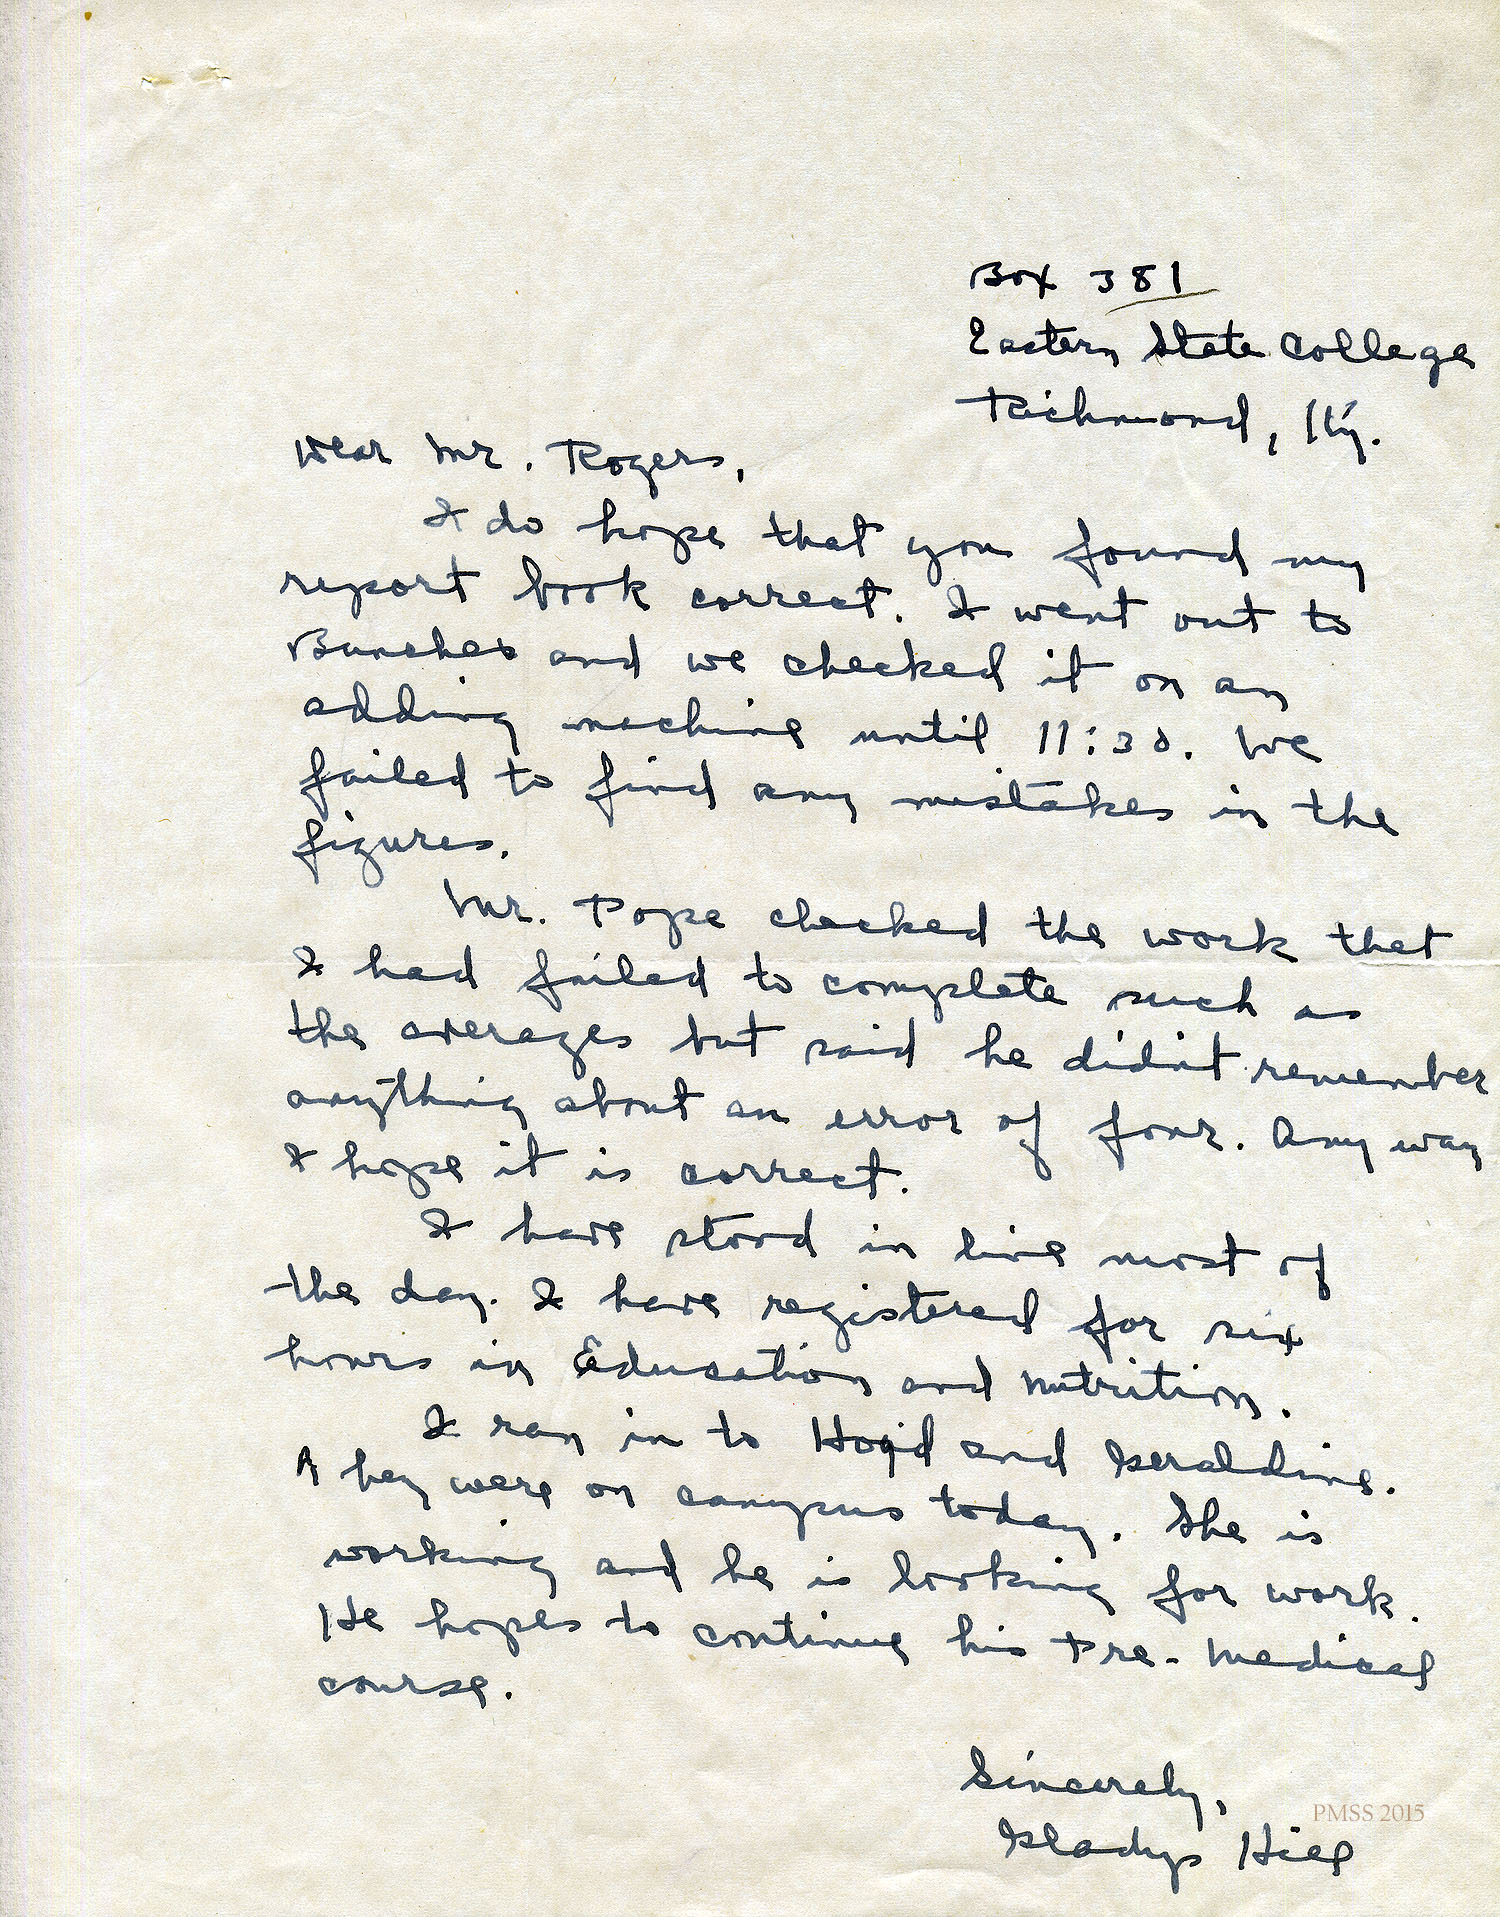 Box 381
Eastern State College
Richmond, Ky.
Dear Mr. Rogers,
I do hope that you found my
report book correct. I went out to
Bunches and we checked it on an
adding machine until 11:30. We
failed to find any mistakes in the
figures.
Mr. Pope checked the work that
I had failed to complete such as
the averages but said he didn't remember
anything about an error of four. Any way
I hope it is correct.
I have stood in line most of
the day. I have registered for six
hours in Education and nutrition.
I ran in to and Geraldine.
They were on campus today. She is
working and he is looking for work.
He hopes to continue his Pre-Medical
course.
Sincerely,
Gladys Hill
PMSS 2015